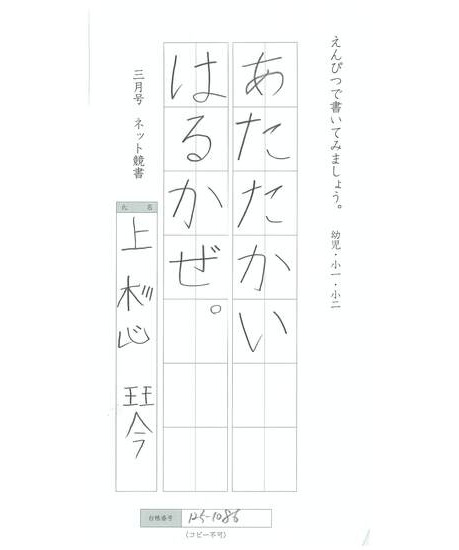 えんぴつで書いてみましょう。 幼児・小一・小二
あたたかい
はるかぜ。
三月号 ネット競書
氏名
上 琴
台帳番号 125-1086
(コピー不可)